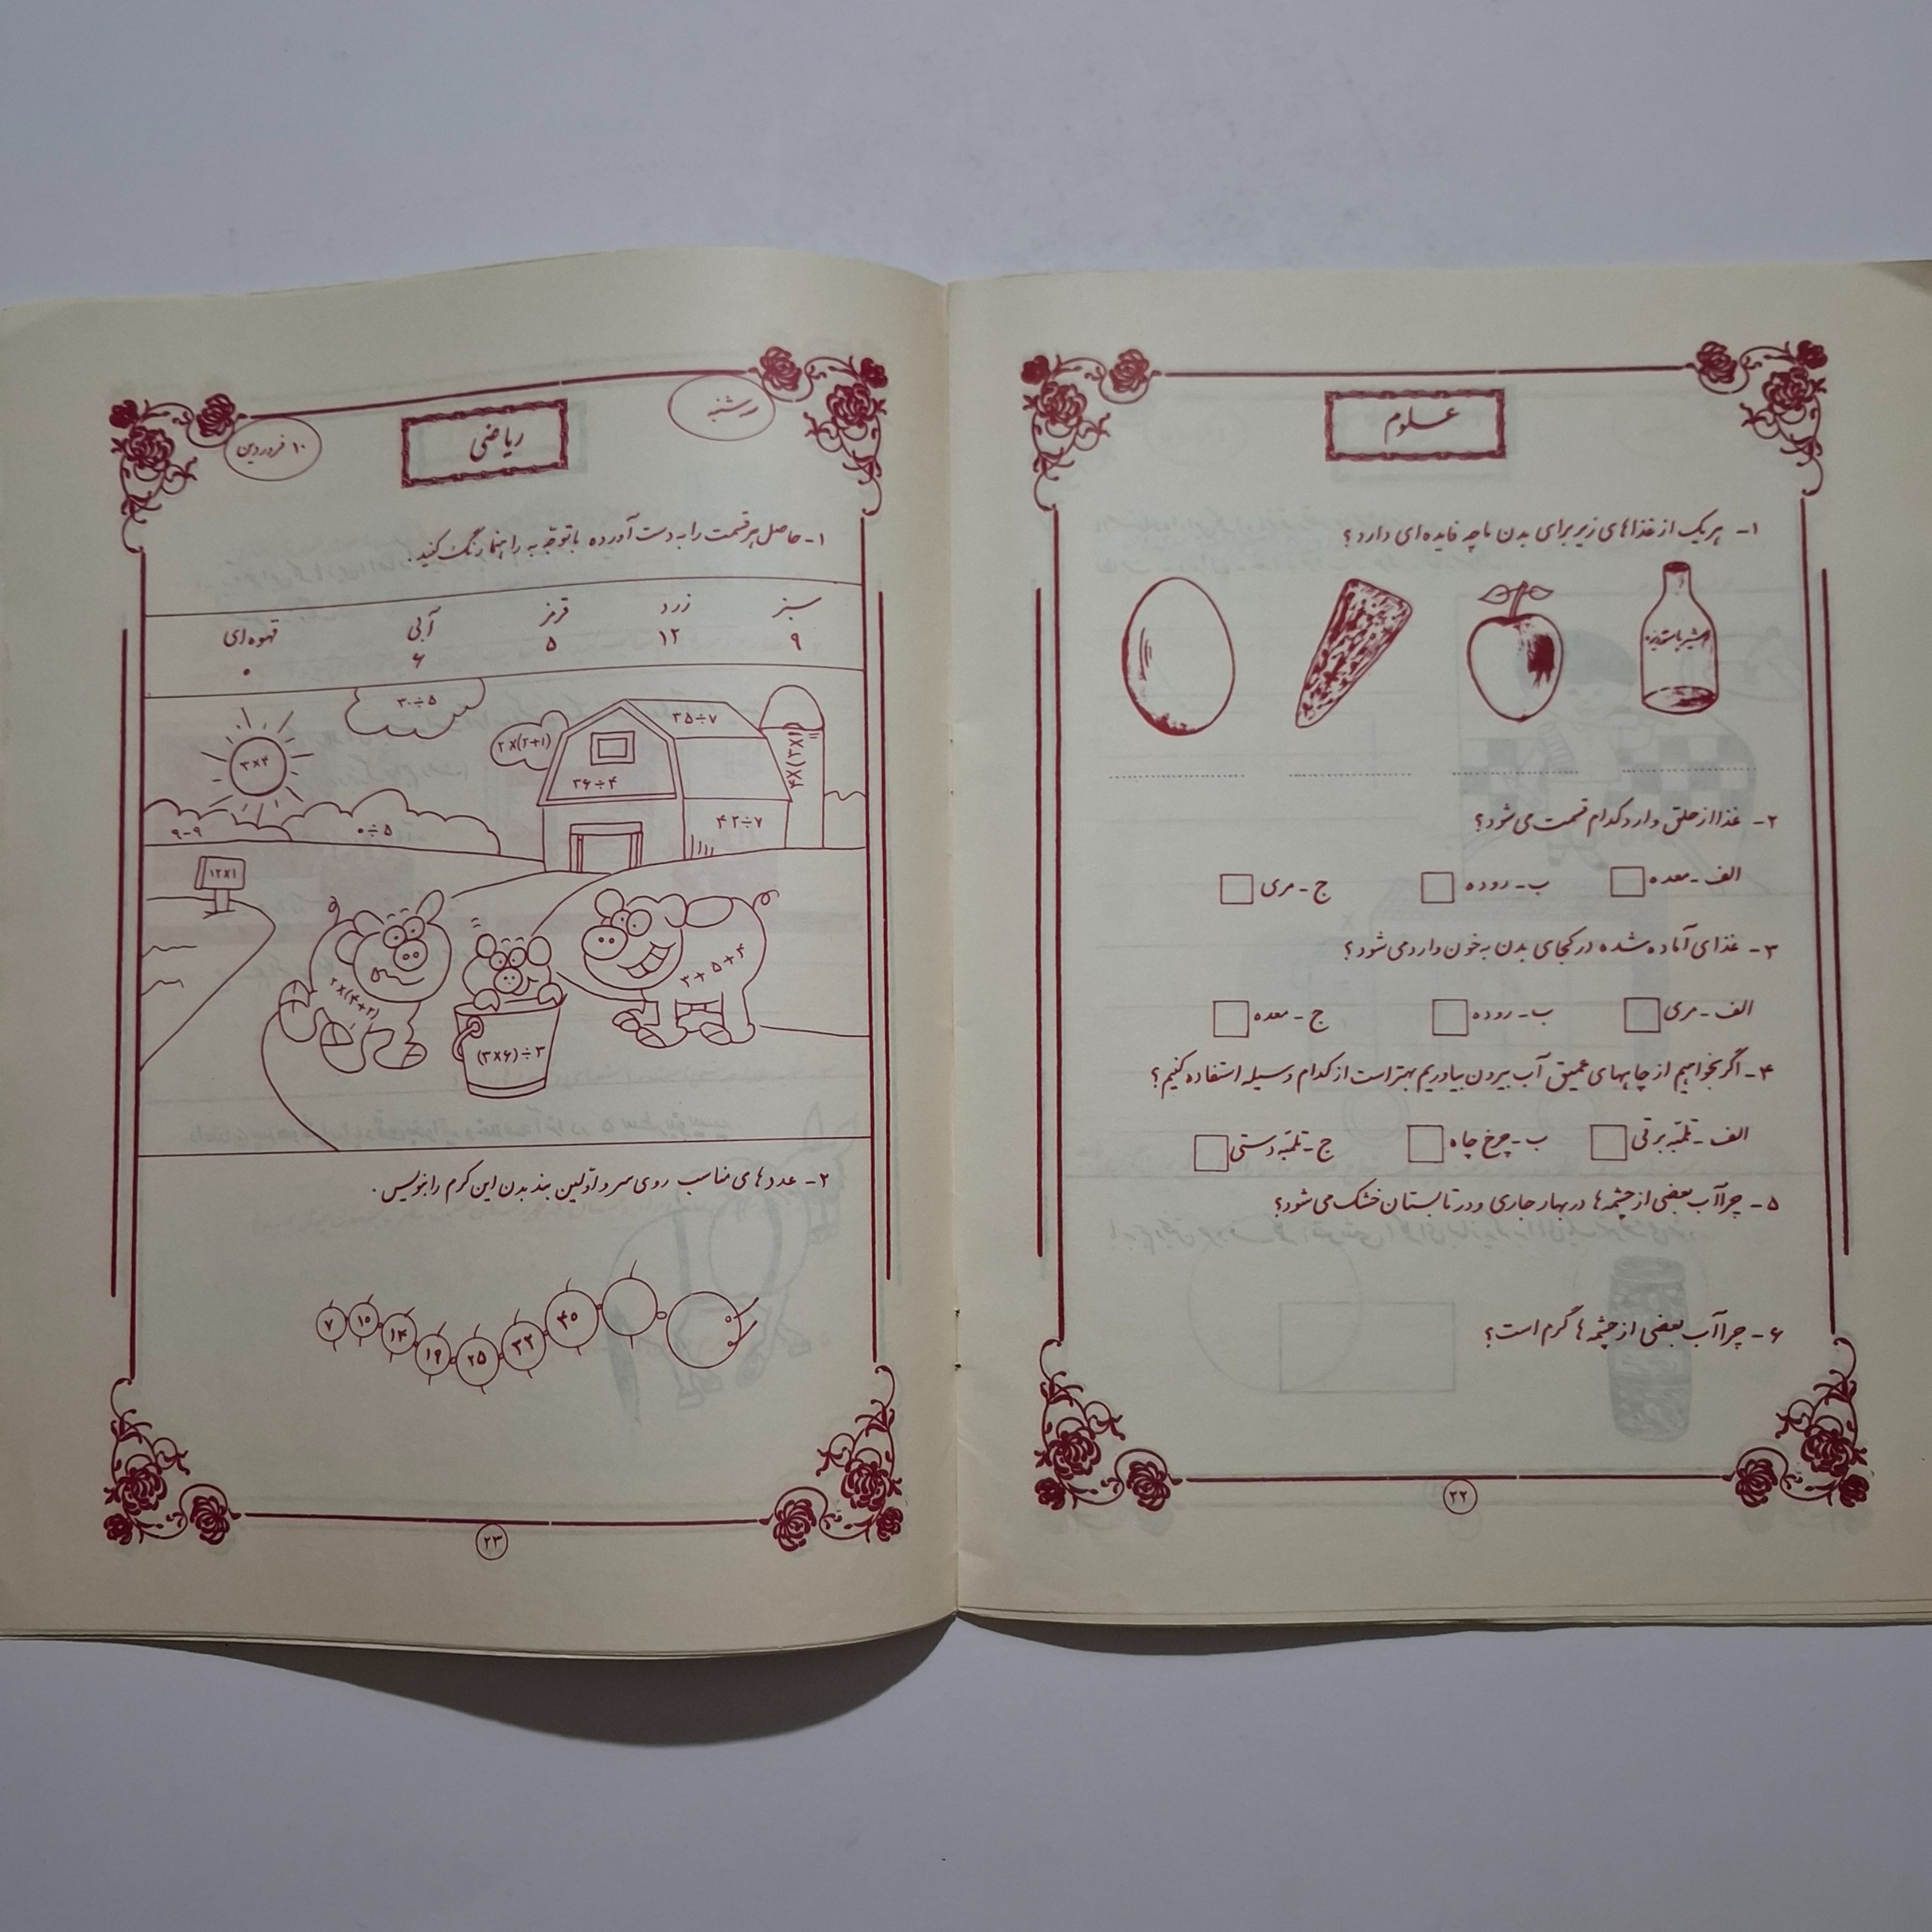 علوم
۱- هریک از غذاهای زیر برای بدن ما چه فایده ای دارد؟
شیر پاستوریزه
۲- غذا از حلق وارد کدام قسمت می شود؟
الف - معده ب - روده ج - مری
۳- غذای آماده شده در کجای بدن به خون وارد می شود؟
الف - مری ب - روده ج - معده
۴- اگر بخواهیم از چاههای عمیق آب بیرون بیاوریم بهتر است از کدام وسیله استفاده کنیم؟
الف - تلمبه برقی ب - چرخ چاه ج - تلمبه دستی
۵- چرا آب بعضی از چشمه ها در بهار جاری و در تابستان خشک می شود؟
۶- چرا آب بعضی از چشمه ها گرم است؟
۲۲
ریاضی
۱۰ فروردین
۱- حاصل هر قسمت را به دست آورده با توجّه به راهنما رنگ کنید.
سبز زرد قرمز آبی قهوه ای
۹ ۱۲ ۵ ۶ ۰
۳۰÷۵
۲×(۲+۱)
۳۵÷۷
۳×۴
۳۶÷۴
۴×(۳×۱)
۹-۹
۰÷۵
۴۲÷۷
۱۲×۱
۲×(۴+۲)
۳+۵+۴
(۳×۶)÷۳
۲- عددهای مناسب روی سر و اوّلین بند بدن این کرم را بنویس.
۷ ۱۰ ۱۴ ۱۹ ۲۵ ۳۲ ۴۰
۲۳